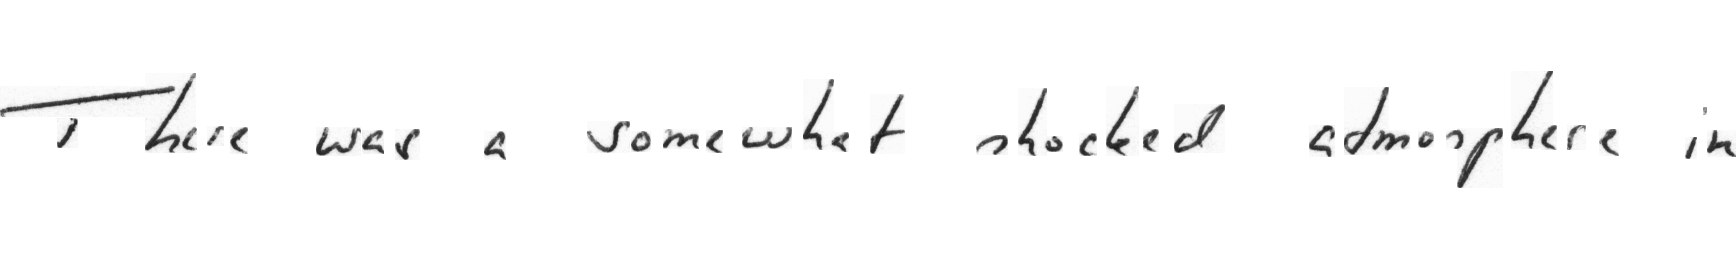 There was a somewhat shocked atmosphere in